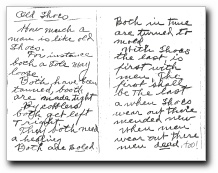 Old Shoes
How much a
man is like old
Shoes.
For instance
both a Sole may
loose
Both have been
tanned, both
are made tight
By cobblers
both get left
& right.
They both need
a
Both are Soled.
Both in time
are turned to
mold
With Shoes
the last is
first with
men, the
first shall
be the last
when Shoes
wear out they're
mended new
when men
wear out they're
men dead, too!